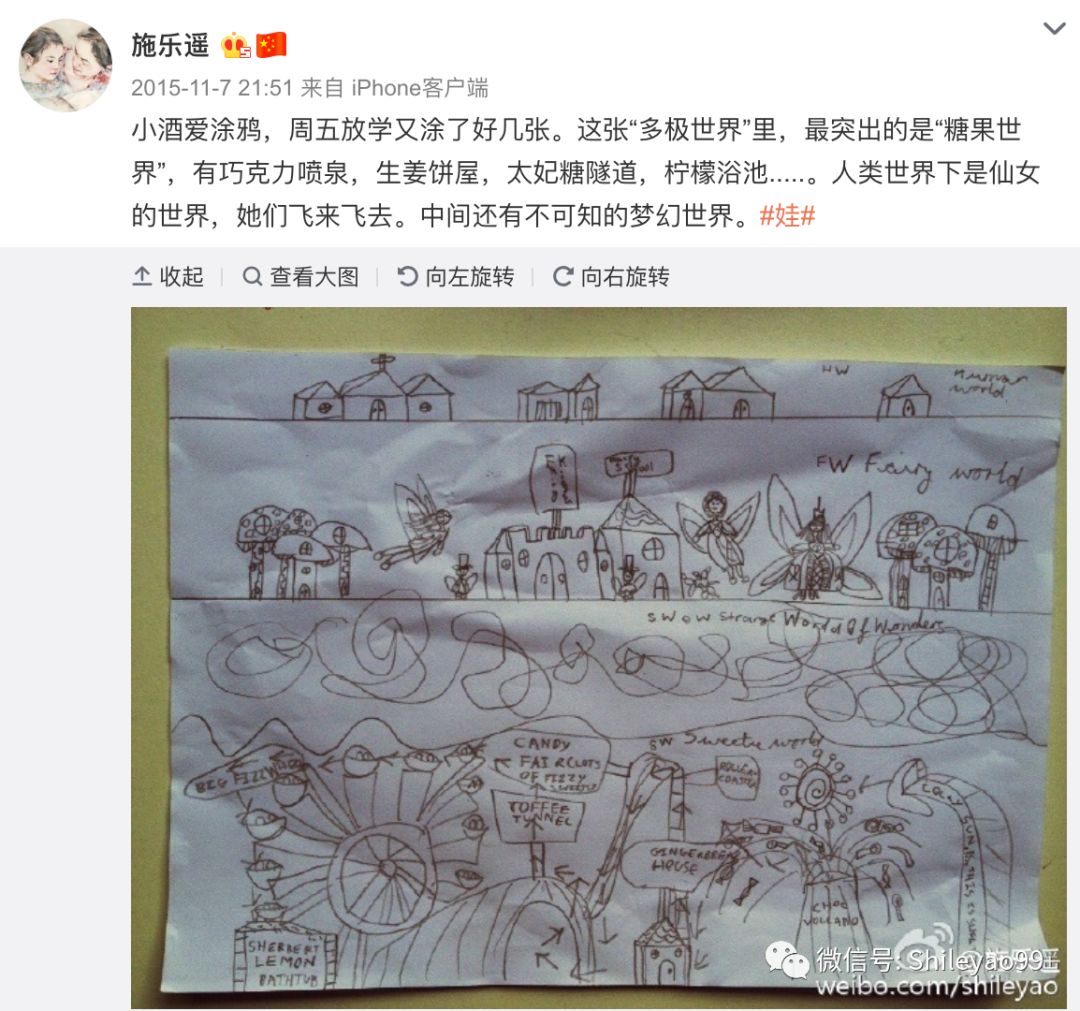 施乐遥
2015-11-7 21:51 来自 iPhone客户端
小酒爱涂鸦，周五放学又涂了好几张。这张“多极世界”里，最突出的是“糖果世
界”，有巧克力喷泉，生姜饼屋，太妃糖隧道，柠檬浴池.....。人类世界下是仙女
的世界，她们飞来飞去。中间还有不可知的梦幻世界。#娃#
收起
查看大图
向左旋转
向右旋转
HW
Human
world
FW Fairy world
SWOW Strange World Of Wonders
SW Sweetie world
BIG FIZZ
CANDY
FAIR CLOTS
OF FIZZY
SWEETS
TOFFEE
TUNNEL
ROLLER
COASTER
HOUSE
CHOC
VOLCANO
SHERBERT
LEMON
BATHTUB
微信号: Shileyao99
weibo.com/shileyao